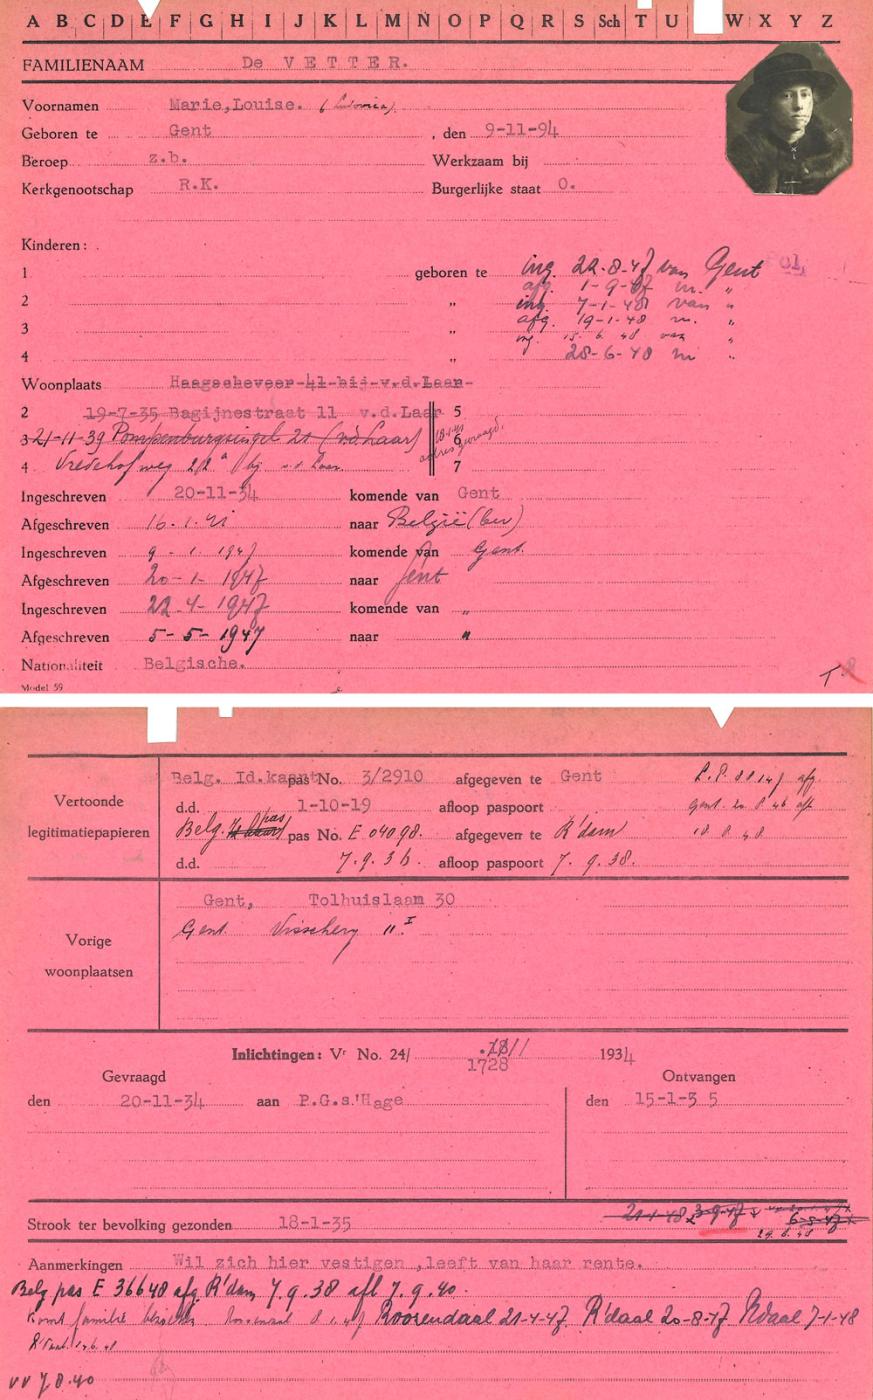 A B C D E F G H I J K L M N O P Q R S Sch T U W X Y Z
FAMILIENAAM De VETTER.
Voornamen Marie,Louise. (Ludovica)
Geboren te Gent , den 9-11-94
Beroep z.b. Werkzaam bij
Kerkgenootschap R.K. Burgerlijke staat O.
Kinderen :
1 geboren te ing. 22-8-47 van Gent
afg. 1-9-47 n. "
2 " ing. 7-1-48 van "
3 " afg. 19-1-48 n. "
ing. 15-6-48 van "
4 " 28-6-48 n "
Woonplaats Haagscheveer 41 bij v.d.Laan
2 19-7-35 Bagijnestraat 11 v.d.Laar 5
3 21-11-39 Pompenburgsingel 21 (v.d. Laar) 6
4 Vredehofweg 22a bij v.d. Laar 7
Ingeschreven 20-11-34 komende van Gent
Afgeschreven 16-1-41 naar België
Ingeschreven 9-1-1947 komende van Gent.
Afgeschreven 20-1-1947 naar Gent
Ingeschreven 22-4-1947 komende van "
Afgeschreven 5-5-1947 naar "
Nationaliteit Belgische.
Model 59
Vertoonde legitimatiepapieren
Belg. Id.kaart pas No. 3/2910 afgegeven te Gent
d.d. 1-10-19 afloop paspoort
Belg. pas pas No. E 04098. afgegeven te R'dam
d.d. 7.9.36. afloop paspoort 7.9.38.
Vorige woonplaatsen
Gent, Tolhuislaan 30
Gent. Visschery 11 I
Inlichtingen: Vr No. 24/ 1811 1934
1728
Gevraagd Ontvangen
den 20-11-34 aan P.G.s'Hage den 15-1-35
Strook ter bevolking gezonden 18-1-35 21-1-48 3-9-47 6-5-47
29.6.48
Aanmerkingen Wil zich hier vestigen ,leeft van haar rente.
Belg pas E 36648 afg R'dam 7.9.38 afl 7.9.40.
Komt familie bezoeken Roosendaal 8.1.47 Roosendaal 21-4-47. R'daal 20-8-47 R'daal 7-1-48
VV 7.8.40